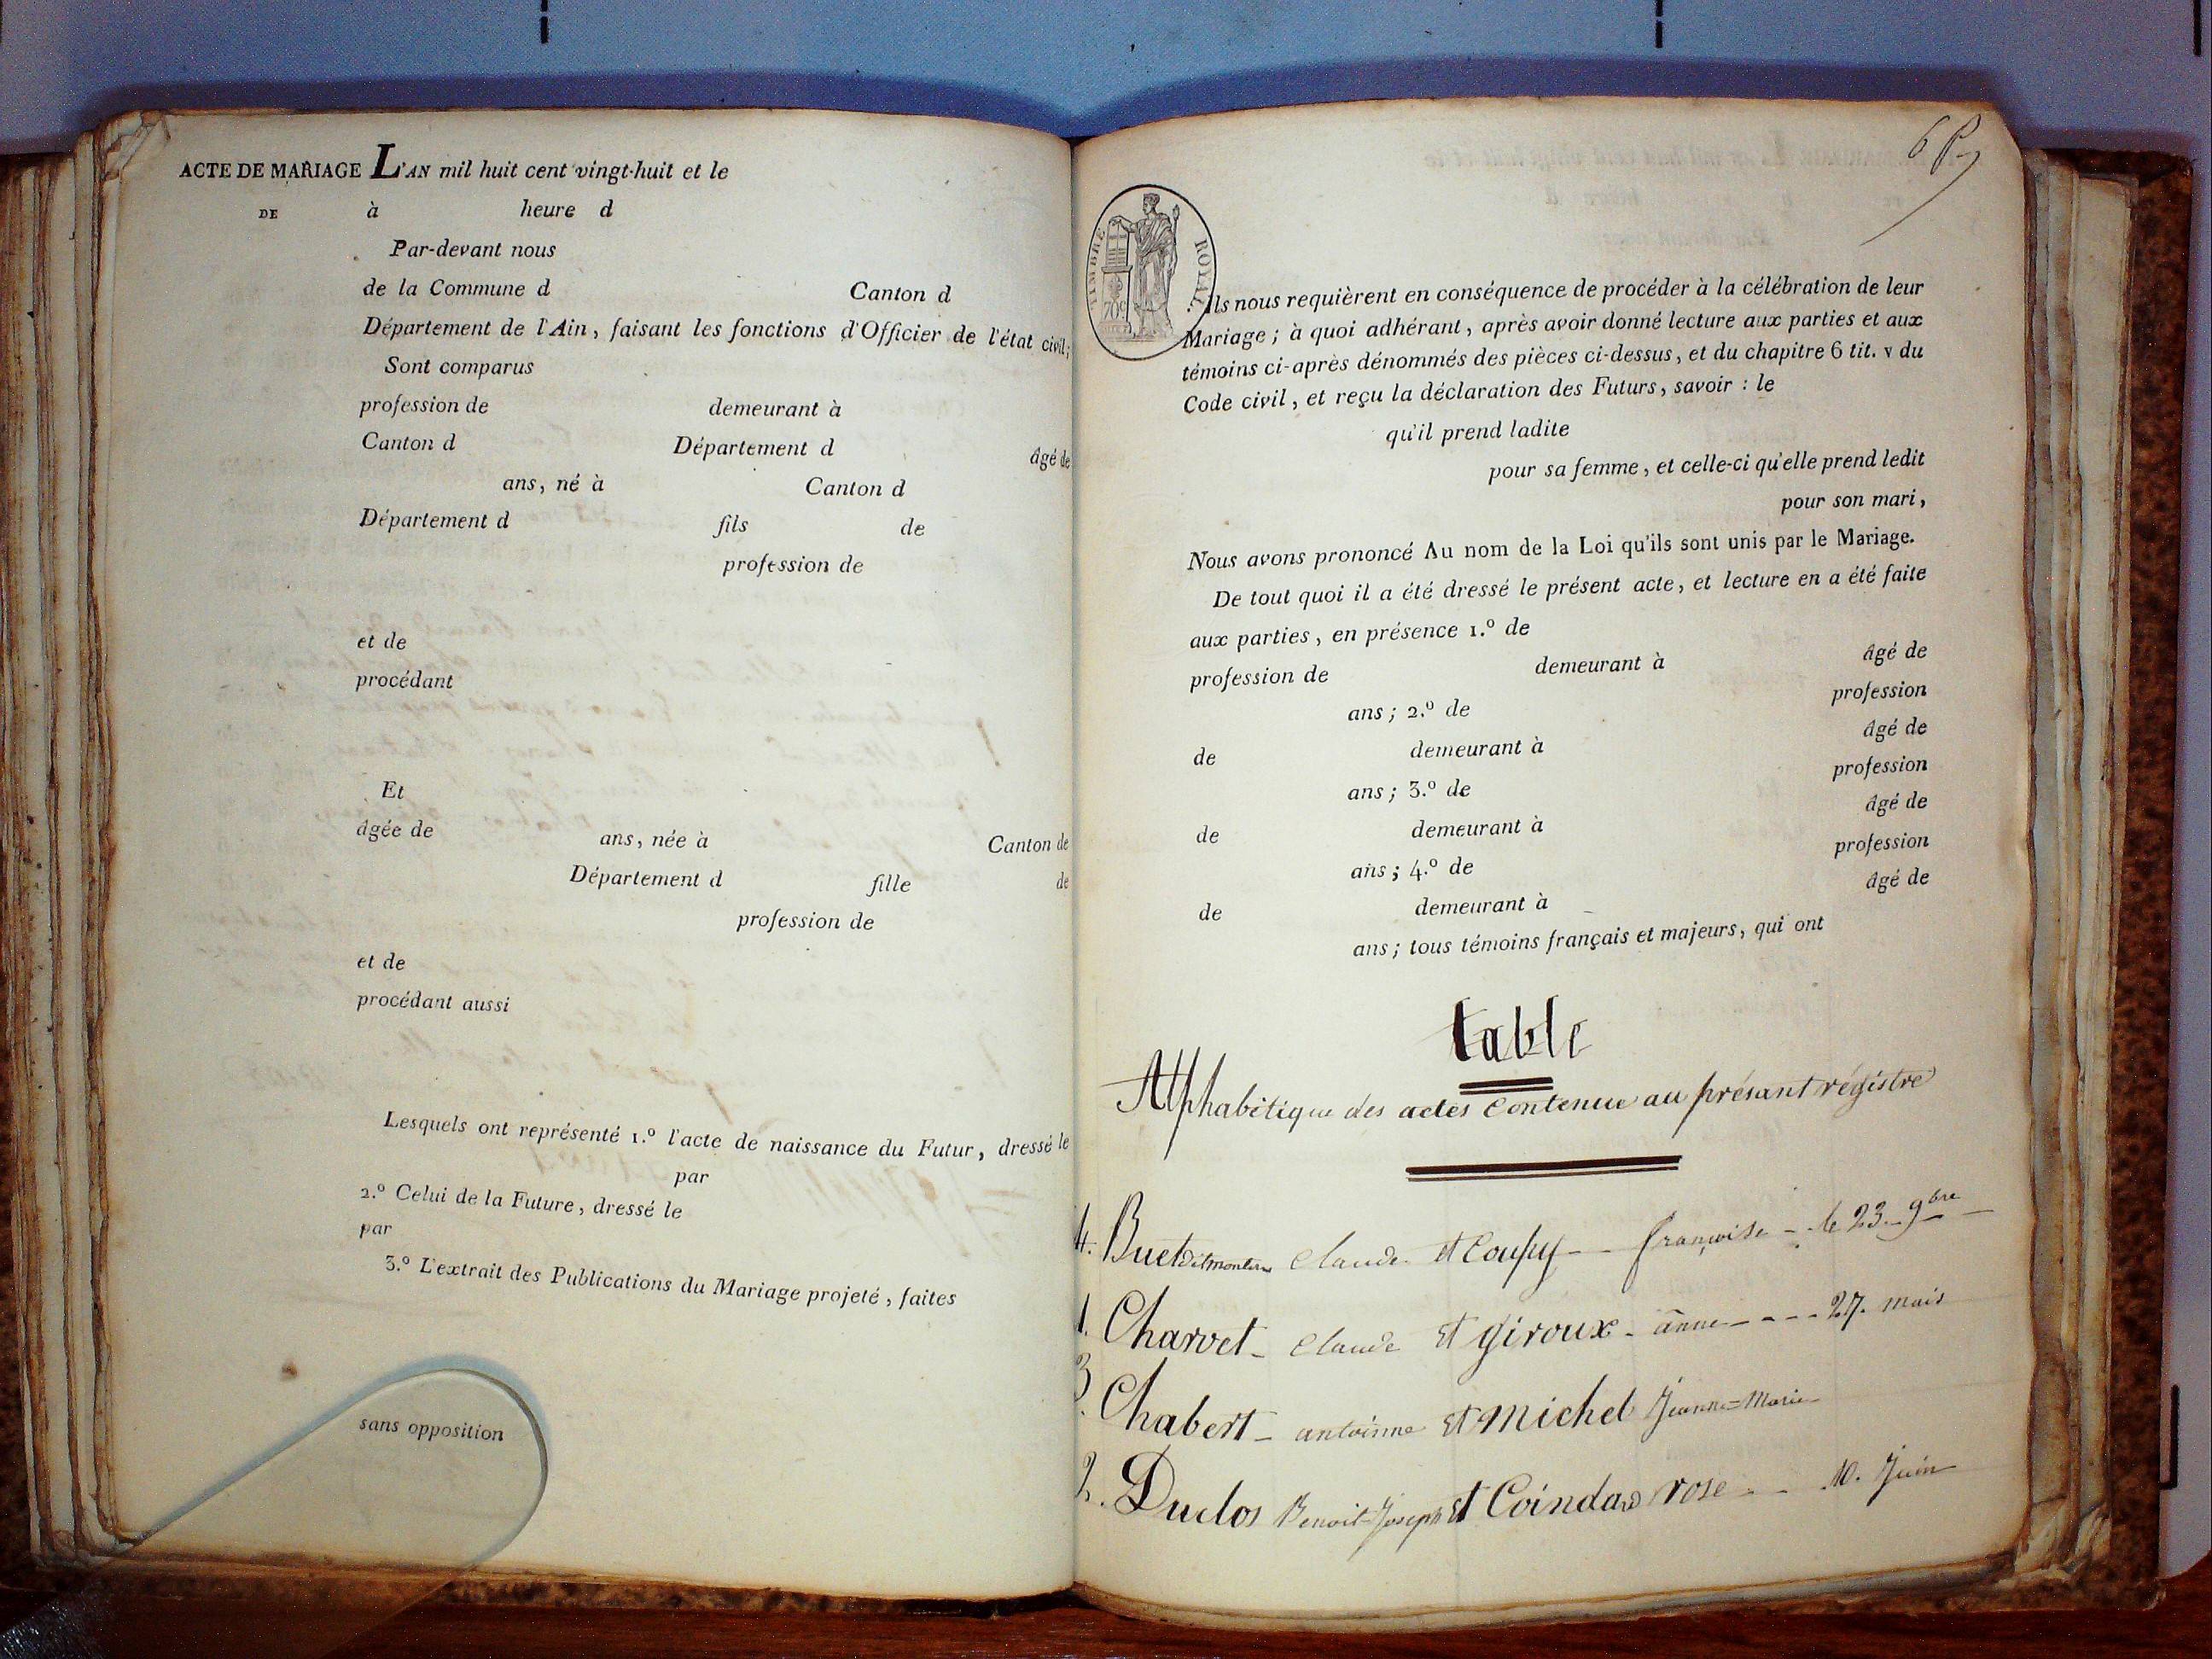 ACTE DE MARIAGE L'AN mil huit cent vingt-huit et le
DE à heure d
Par-devant nous
de la Commune d Canton d
Département de l'Ain, faisant les fonctions d'Officier de l'état civil;
Sont comparus
profession de demeurant à
Canton d Département d âgé de
ans, né à Canton d
Département d fils de
profession de
et de
procédant
Et
âgée de ans, née à Canton de
Département d fille de
profession de
et de
procédant aussi
Lesquels ont représenté 1.º l'acte de naissance du Futur, dressé le
par
2.º Celui de la Future, dressé le
par
3.º L'extrait des Publications du Mariage projeté, faites
sans opposition
6
TIMBRE ROYAL
70c
Ils nous requièrent en conséquence de procéder à la célébration de leur
Mariage; à quoi adhérant, après avoir donné lecture aux parties et aux
témoins ci-après dénommés des pièces ci-dessus, et du chapitre 6 tit. v du
Code civil, et reçu la déclaration des Futurs, savoir : le
qu'il prend ladite
pour sa femme, et celle-ci qu'elle prend ledit
pour son mari,
Nous avons prononcé Au nom de la Loi qu'ils sont unis par le Mariage.
De tout quoi il a été dressé le présent acte, et lecture en a été faite
aux parties, en présence 1.º de
profession de demeurant à âgé de
ans; 2.º de profession
de demeurant à âgé de
ans; 3.º de profession
de demeurant à âgé de
ans; 4.º de profession
de demeurant à âgé de
ans; tous témoins français et majeurs, qui ont
table
Alphabétique des actes Contenue au présant régistre
4. Buet Claude et Coupy - - françoise - - le 23 - 9bre
1. Charvet - Claude et giroux - anne - - - - 27. mais
3. Chabert - antoinne et Michel Jeanne=Marie
2. Duclos Benoit-Joseph et Coindard rose - - 10. Juin